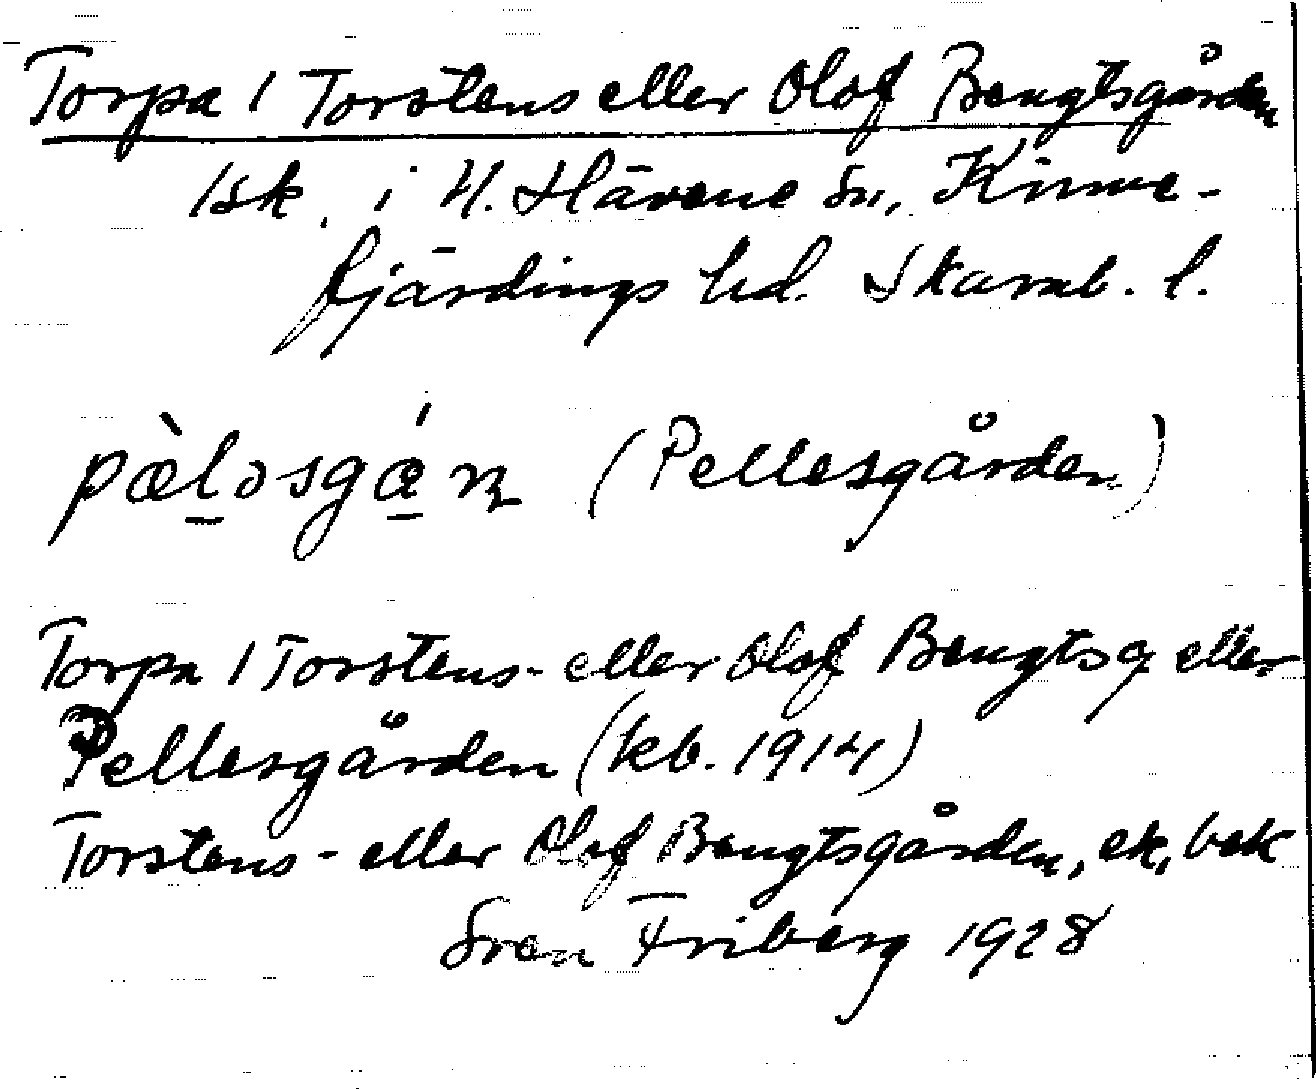 Torpa 1 Torstens eller Olof Bengtsgården
1sk. i N. Härene sn, Kinne-
fjärdings hd. Skarab. l.
pæ̀ḻəsgǽ̱ n̥ (Pellesgården)
Torpa 1 Torstens- eller Olof Bengtsg eller
Pellesgården (kb. 1914)
Torstens- eller Olof Bengtsgården, ek, bek
Sven Friberg 1928